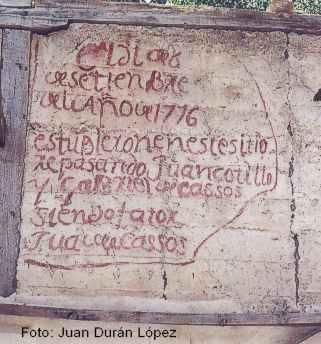 El dia 8
de setienbre
del AÑO de 1776
estubieron en este sitio
repasando Juan
y Gabriel de Cassos
siendo fator
Juan de Cassos
Foto: Juan Durán López